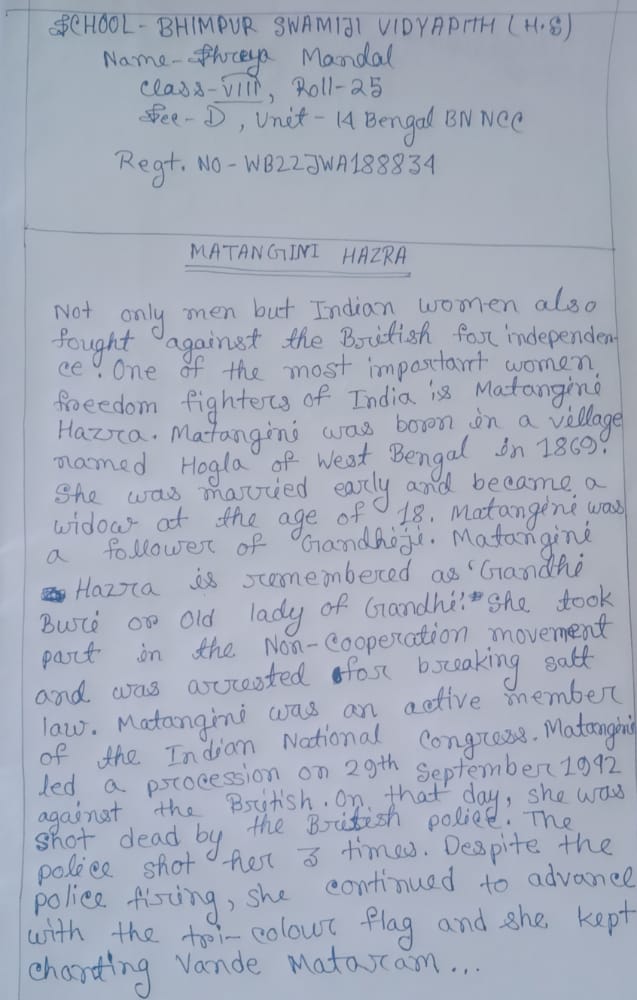 SCHOOL - BHIMPUR SWAMIJI VIDYAPITH (H.S)
Name - Shreya Mandal
Class - VIII, Roll - 25
Sec - D, Unit - 14 Bengal BN NCC
Regt. NO - WB22JWA188834
MATANGINI HAZRA
Not only men but Indian women also
fought against the British for independen-
ce. One of the most important women
freedom fighters of India is Matangini
Hazra. Matangini was born in a village
named Hogla of West Bengal in 1869.
She was married early and became a
widow at the age of 18. Matangini was
a follower of Gandhiji. Matangini
Hazra is remembered as 'Gandhi
Buri or Old lady of Gandhi'. She took
part in the Non-Cooperation movement
and was arrested for breaking salt
law. Matangini was an active member
of the Indian National Congress. Matangini
led a procession on 29th September 1942
against the British. On that day, she was
shot dead by the British police. The
police shot her 3 times. Despite the
police firing, she continued to advance
with the tri-colour flag and she kept
chanting Vande Mataram...